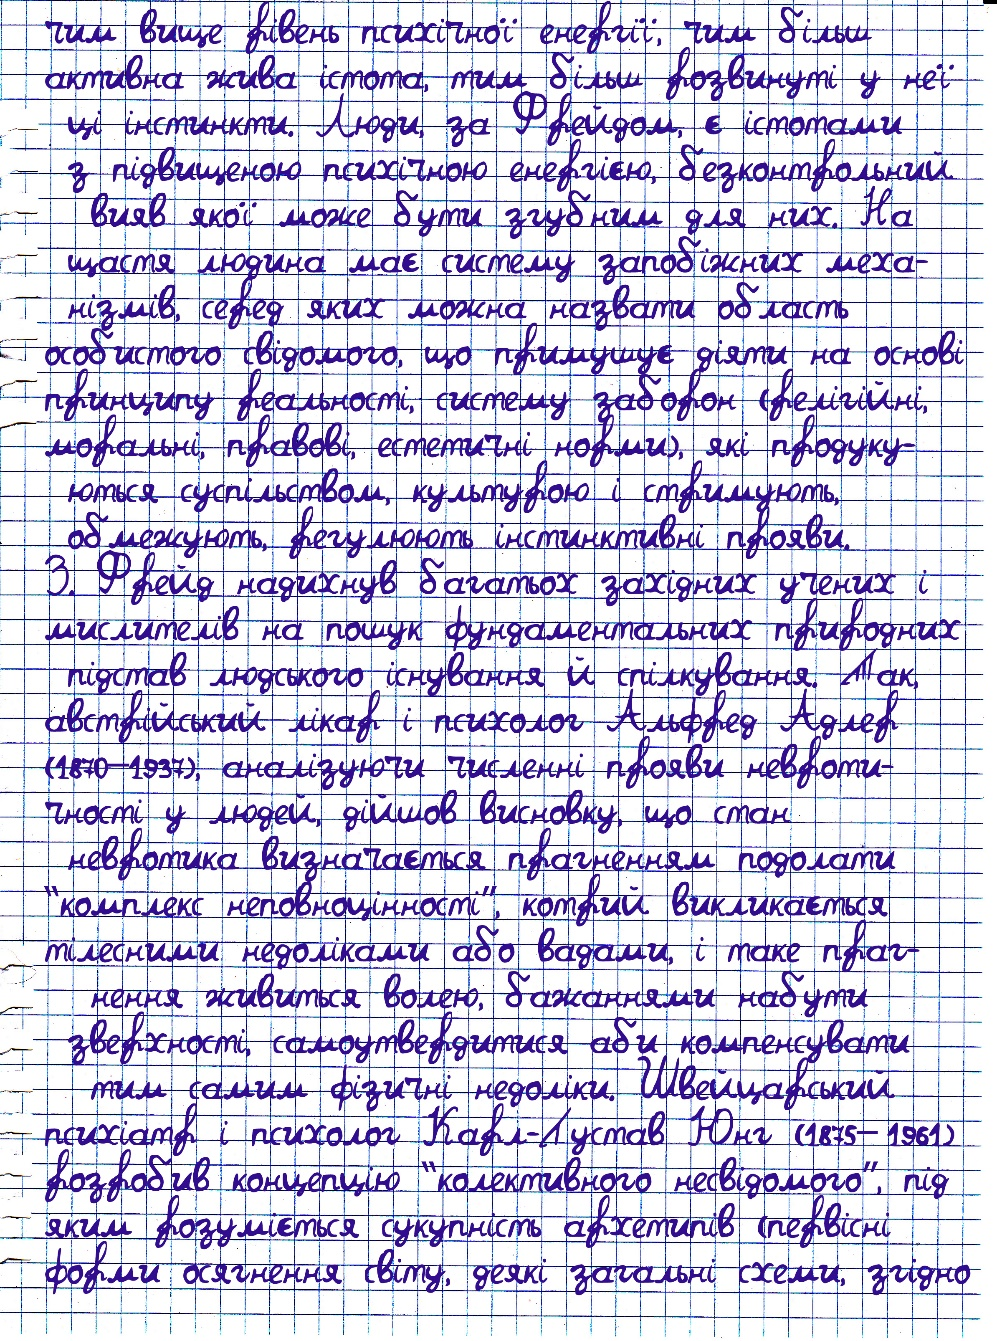 чим вище рівень психічної енергії, чим більш
активна жива істота, тим більш розвинуті у неї
ці інстинкти. Люди, за Фрейдом, є істотами
з підвищеною психічною енергією, безконтрольний
вияв якої може бути згубним для них. На
щастя людина має систему запобіжних меха-
нізмів, серед яких можна назвати область
особистого свідомого, що примушує діяти на основі
принципу реальності, систему заборон (релігійні,
моральні, правові, естетичні норми), які продуку-
ються суспільством, культурою і стримують,
обмежують, регулюють інстинктивні прояви.
3. Фрейд надихнув багатьох західних учених і
мислителів на пошук фундаментальних природних
підстав людського існування й спілкування. Так,
австрійський лікар і психолог Альфред Адлер
(1870-1937), аналізуючи численні прояви невроти-
чності у людей, дійшов висновку, що стан
невротика визначається прагненням подолати
"комплекс неповноцінності", котрий викликається
тілесними недоліками або вадами, і таке праг-
нення живиться волею, бажаннями набути
зверхності, самоутвердитися аби компенсувати
тим самим фізичні недоліки. Швейцарський
психіатр і психолог Карл-Густав Юнг (1875-1961)
розробив концепцію "колективного несвідомого", під
яким розуміється сукупність архетипів (первісні
форми осягнення світу, деякі загальні схеми, згідно